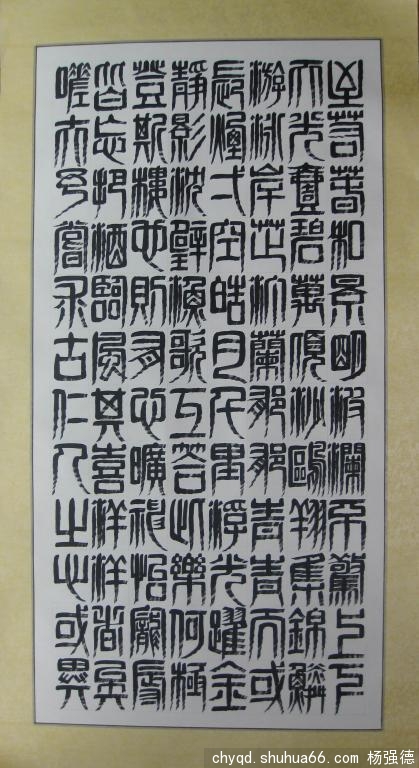 至若春和景明波瀾不驚上下
天光壹碧萬頃沙鷗翔集錦鱗
游泳岸芷汀蘭郁郁青青而或
長煙弌空皓月千里浮光躍金
靜影沈璧漁歌互答此樂何極
登斯樓也則有心曠神怡寵辱
皆忘把酒臨風其喜洋洋者矣
嗟夫予嘗求古仁人之心或異
chyqd.shuhua66.com 杨强德